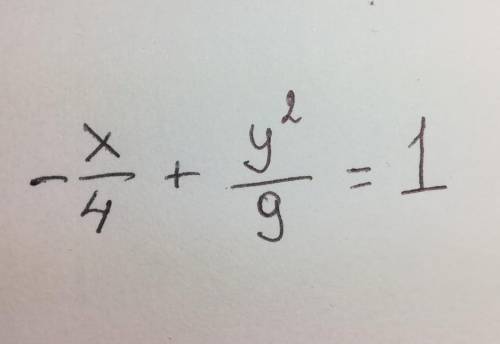 -x/4 + y²/9 = 1